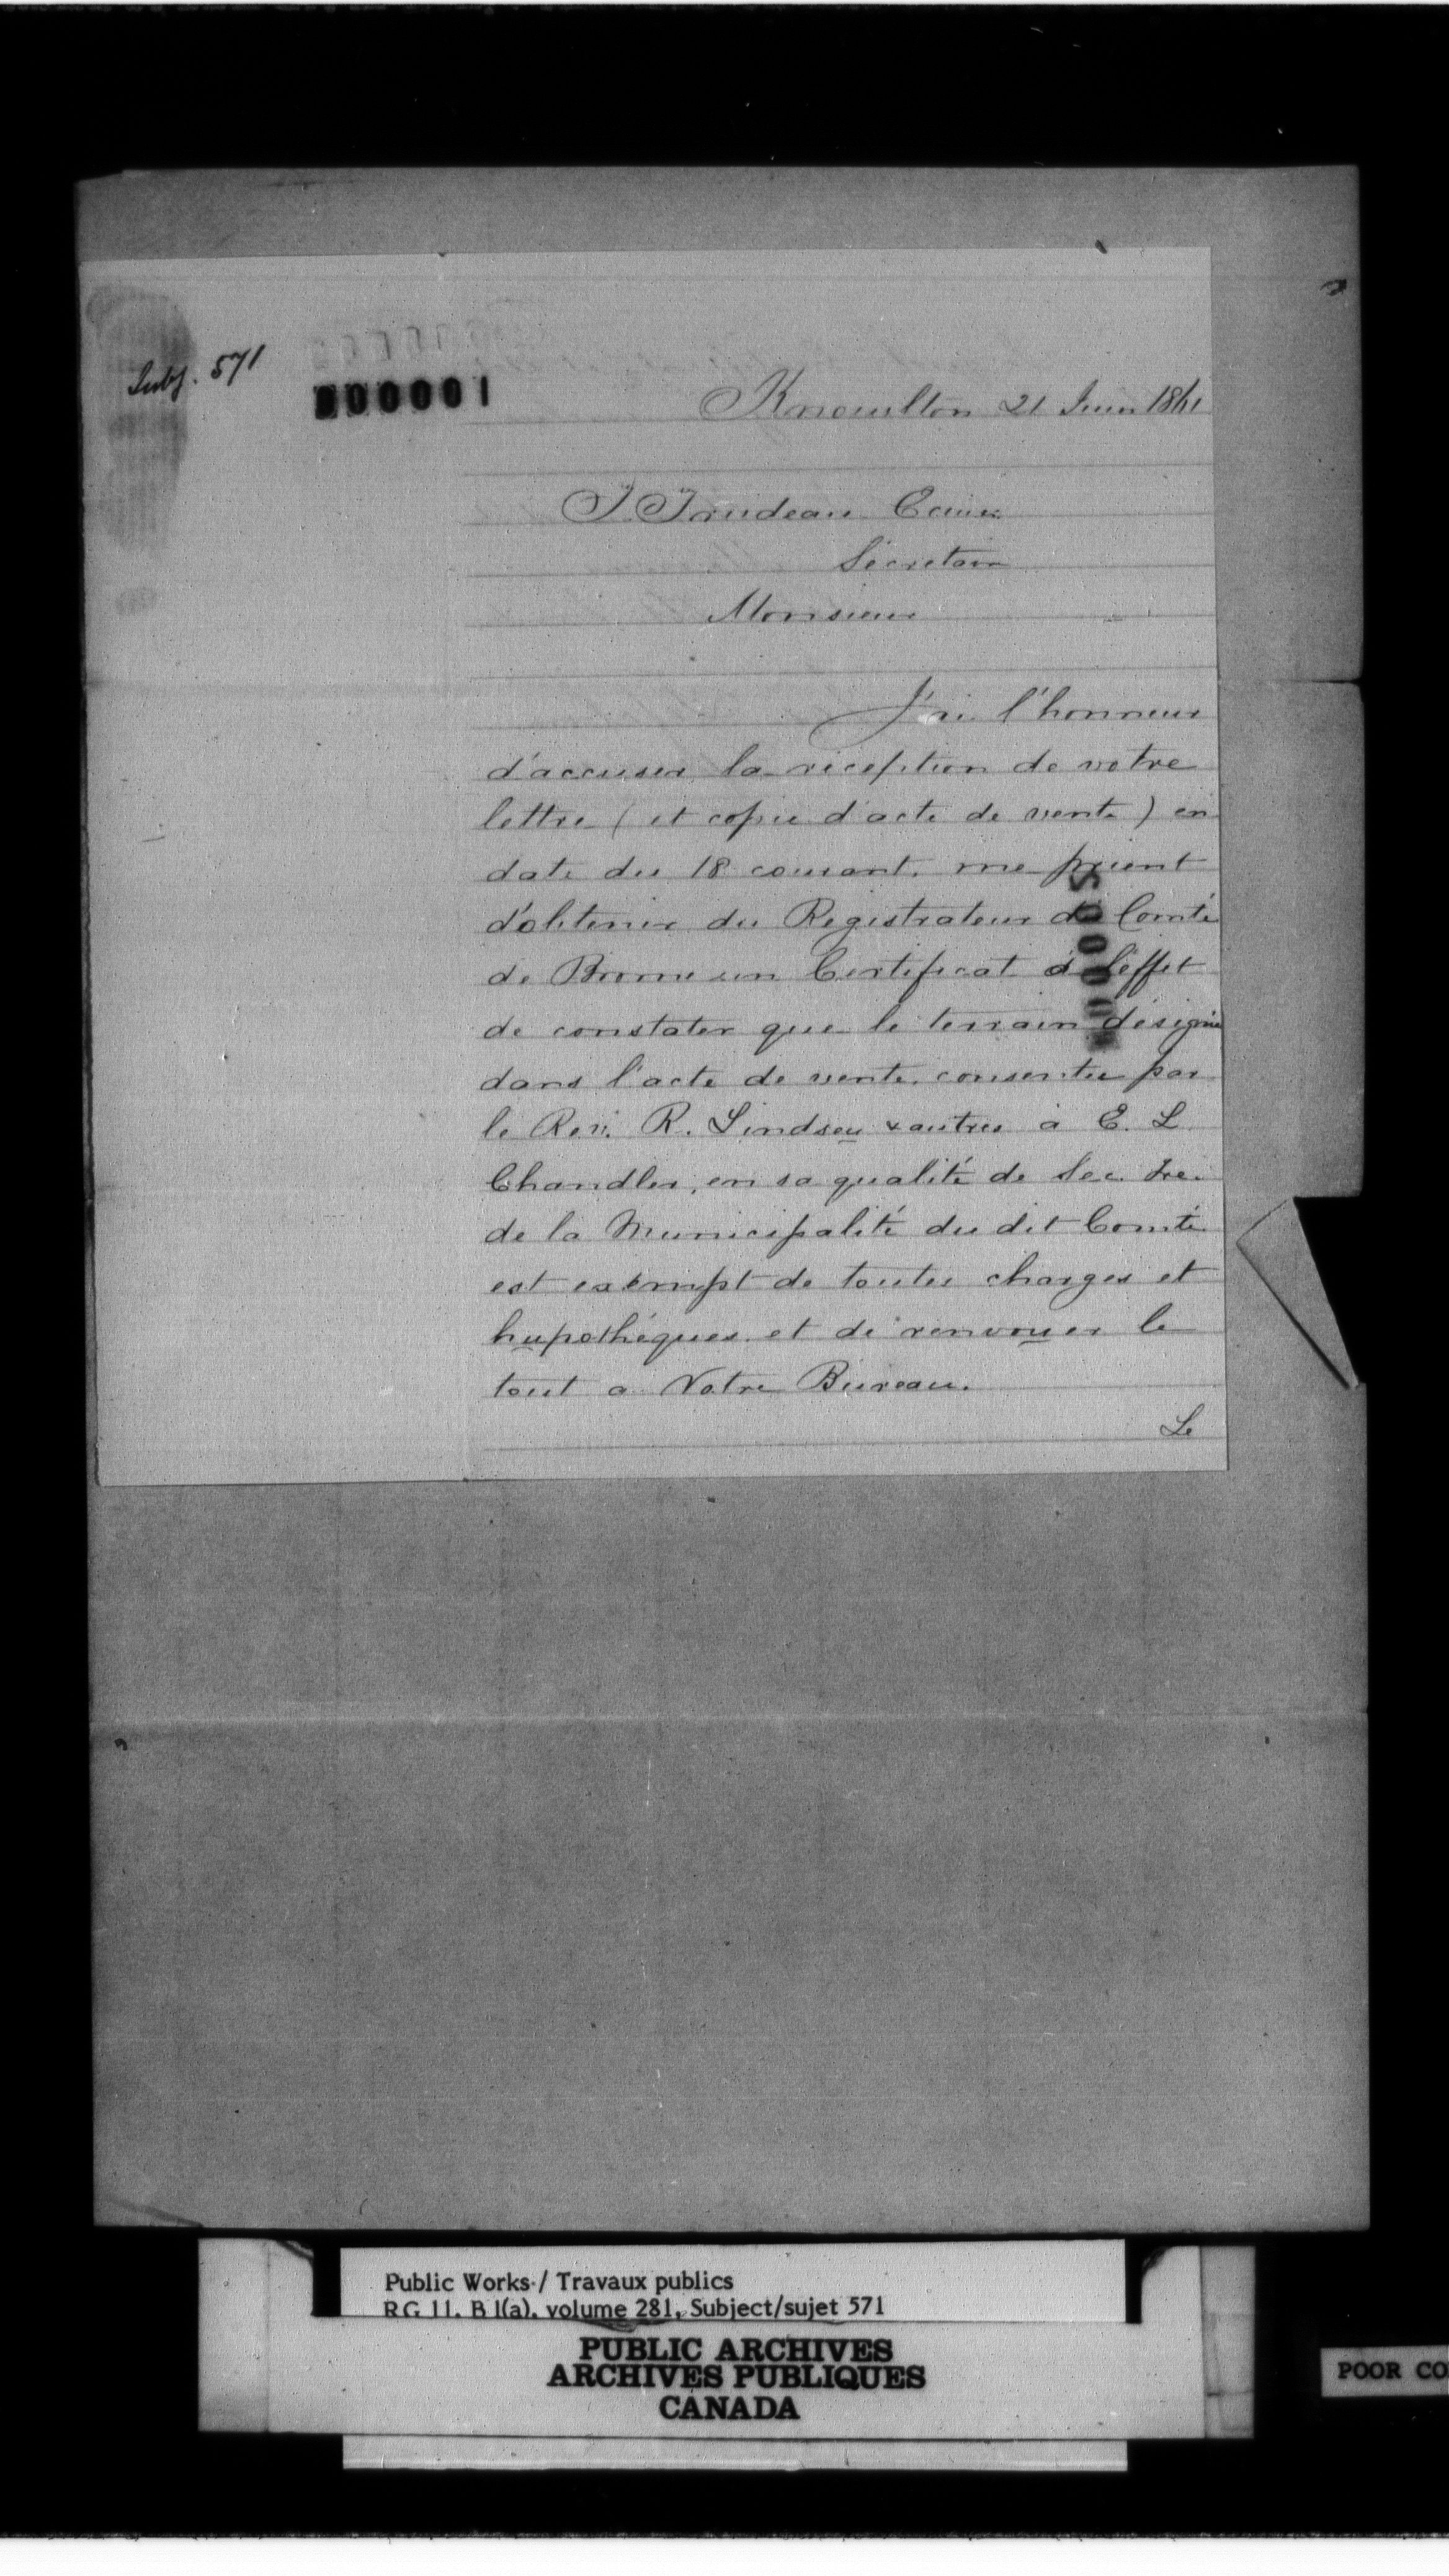 Subj. 571
000001
Knowlton 21 Juin 1861
T Trudeau Ecuier
Sécretaire
Monsieur
J'ai l'honneur
d'accuser la réception de votre
lettre (et copie d'acte de vente) en
date du 18 courant, me priant
d'obtenir du Registrateur du Comté
de Brome un Certificat à l'effet
de constater que le terrain désigné
dans l'acte de vente, consentie par
le Rev. R. Lindsey & autres à E. L
Chandler, en sa qualité de Sec. Tre.
de la Municipalité du dit Comté
est exempt de toutes charges et
hypothéques et de renvoyer le
tout a Votre Bureau.
Le
Public Works / Travaux publics
RG 11, B1(a), volume 281, Subject/sujet 571
PUBLIC ARCHIVES
ARCHIVES PUBLIQUES
CANADA
POOR CO